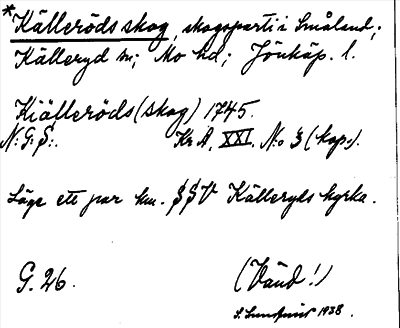 *Källeröds skog, skogsparti i Småland;
Källeryd sn; Mo hd; Jönköp. l.
Kiälleröds (skog) 1745.
N: G: S:. Kr A, XXI. N:o 3 (kop.).
Läge ett par km. SSV Källeryds kyrka.
G. 26. (Vänd!)
S. Lundqvist 1938.